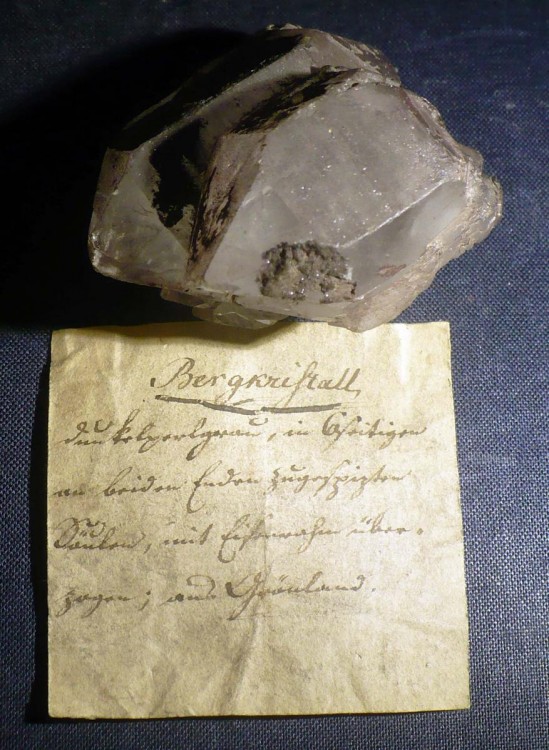 Bergkristall
dunkelperlgrau, in 6seitigen
an beiden Enden zugespizten
Säulen, mit Eisenrahm über-
zogen; aus Grönland.